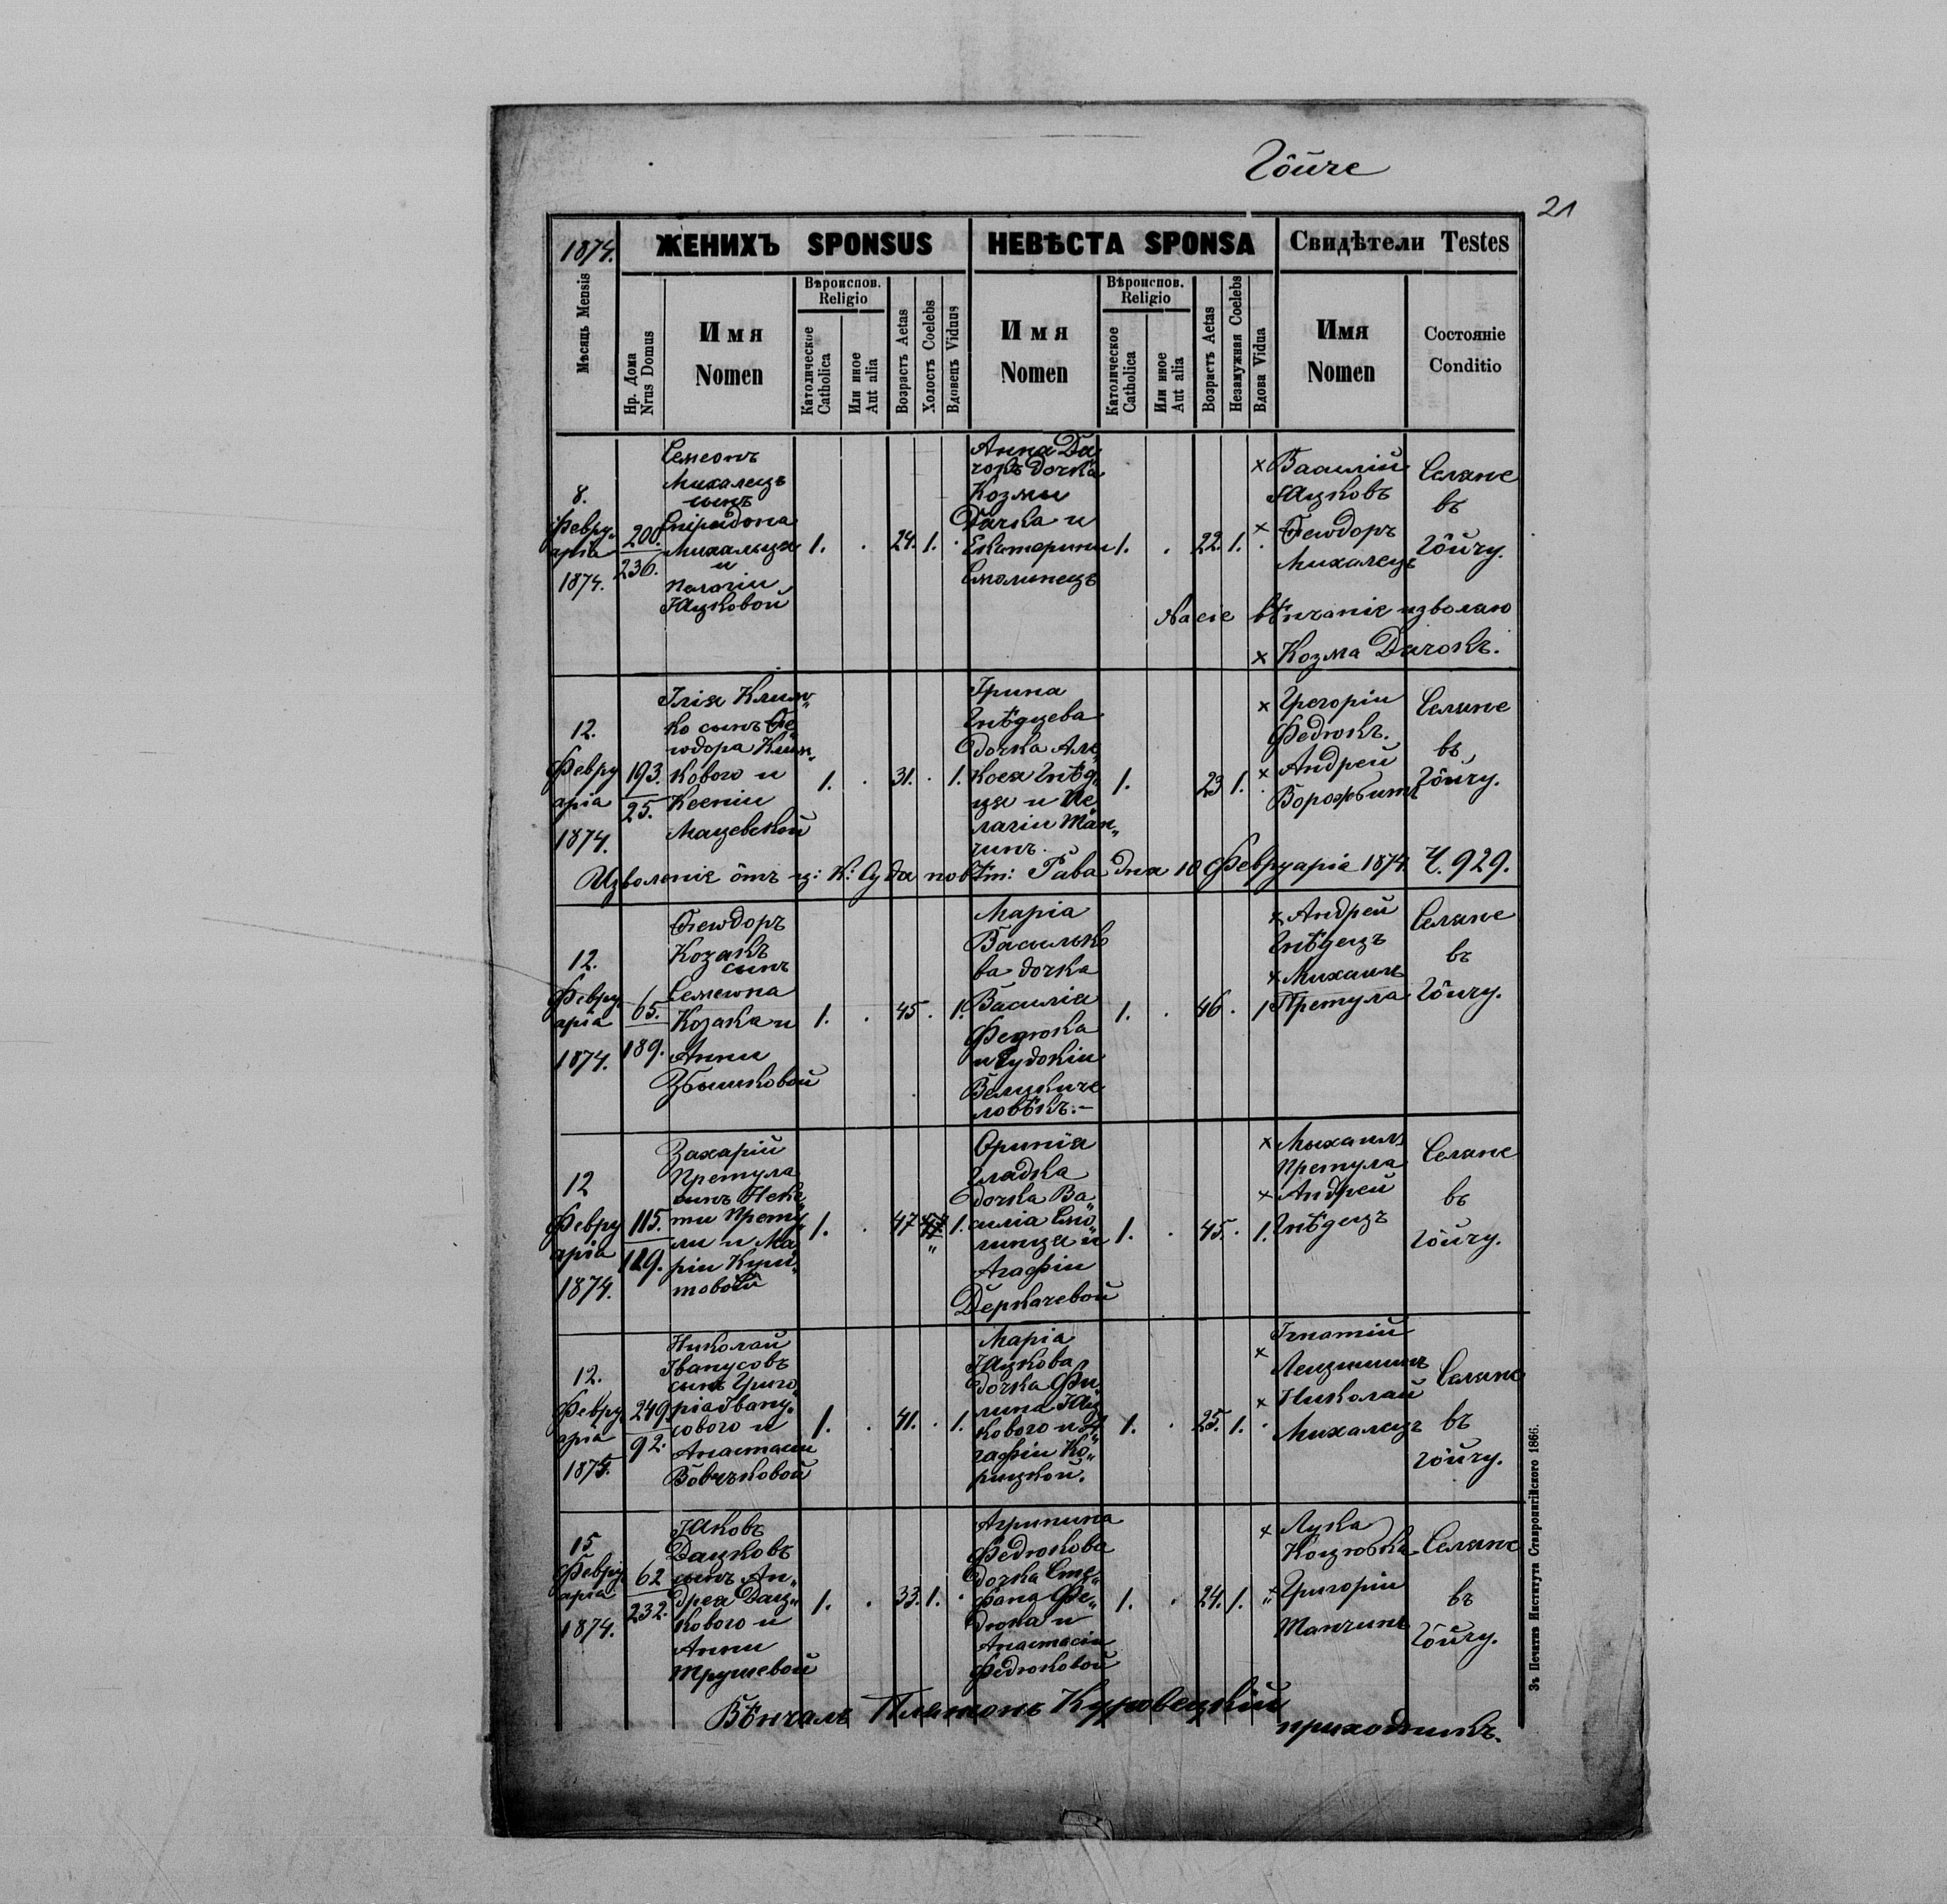 Гôйче
21
1874.
ЖЕНИХЪ SPONSUS
НЕВѢСТА SPONSA
Свидѣтели Testes
Мѣсяць Mensis
Нр. Дома
Nrus Domus
Имя
Nomen
Вѣроиспов.
Religio
Католическое
Catholica
Или иное
Aut alia
Возрастъ Aetas
Холостъ Coelebs
Вдовецъ Viduus
Имя
Nomen
Вѣроиспов.
Religio
Католическое
Catholica
Или иное
Aut alia
Возрастъ Aetas
Незамужная Coelebs
Вдова Vidua
Имя
Nomen
Состояніе
Conditio
8.
Февру„
арія
1874.
200.
236.
Семеонъ
Михалецъ
сынъ
Спіридона
Михальця
и
Пелагіи
Яцковой
1.
.
24.
1.
.
Анна Да
чокъ дочка
Козмы
Дачка и
Екатерины
Смолинецъ
1.
.
22.
1.
.
× Василій
Яцковъ
× Ѳеодоръ
Михалецъ
Селяне
въ
Гôйчу.
На сіе вѣнчаніе изволяю
× Козма Дачокъ.
12.
Февру
арія
1874.
193.
25.
Ілія Клим„
ко сынъ Ѳе„
ѡдора Клим„
кового и
Ксеніи
Мацевской
1.
.
31.
.
1.
Ірина
Гнѣдцева
дочка Але„
ксея Гнѣд„
ця и Пе
лагіи Ман„
чинъ.
1.
23
1.
.
× Григорій
Федюкъ.
× Андрей
Ворожбитъ
Селяне
въ
Гôйчу.
Изволеніе ôтъ ц: к: Суда повѣт: Рава дня 10 Февруарія 1874. Ч. 929.
12.
Февру
арія
1874.
65.
189.
Ѳеѡдоръ
Козакъ
сынъ
Семеѡна
Козака и
Анны
Збышковой
1.
.
45
.
1.
Марія
Василько
ва дочка
Василія
Федюка
и Еудокіи
Велцкиче
ловѣкъ.–
1.
.
46
.
1
× Андрей
Гнѣдецъ
× Михаилъ
Претула
Селяне
въ
Гôйчу.
12
Февру
арія
1874.
115.
119.
Захарій
Претула
сынъ Неки„
ти Прету„
ли и Ма„
ріи Кули„
товой
1.
.
47
1.
Оринія
Гладка
дочка Ва„
силія Смо„
линця и
Агафіи
Деркачевой
1.
.
45.
.
1.
× Мыхаилъ
Претула
× Андрей
Гнѣдецъ
Селяне
въ
Гôйчу.
12.
Февру
арія
1874.
249.
92.
Николай
Іванусовъ
сынъ Григо„
рія Івану„
сового и
Анастасіи
Вовчъковой
1.
.
41.
.
1.
Марія
Яцкова
дочка Фи„
липа Яц„
кового и А„
гафіи Ко„
рицкой.
1.
.
25.
1.
.
×
Ігнатій
Лецишинъ
× Николай
Михалецъ
Селяне
въ
Гôйчу.
15
Февру
арія
1874.
62
232.
Яковъ
Дацковъ
сынъ Ан„
дрея Дац„
кового и
Анны
Трушевой
1.
.
33.
1.
.
Агрипина
Федюкова
дочка Сте„
фана Фе„
дюка и
Анастасіи
Федюковой
1.
.
24.
1.
„
× Лука
Коцюбка
× Григорій
Манчинъ
Селяне
въ
Гôйчу.
Вѣнчалъ Платонъ Куровецкій
приходникъ.
Зъ Печатнѣ Института Ставропигійского 1866.